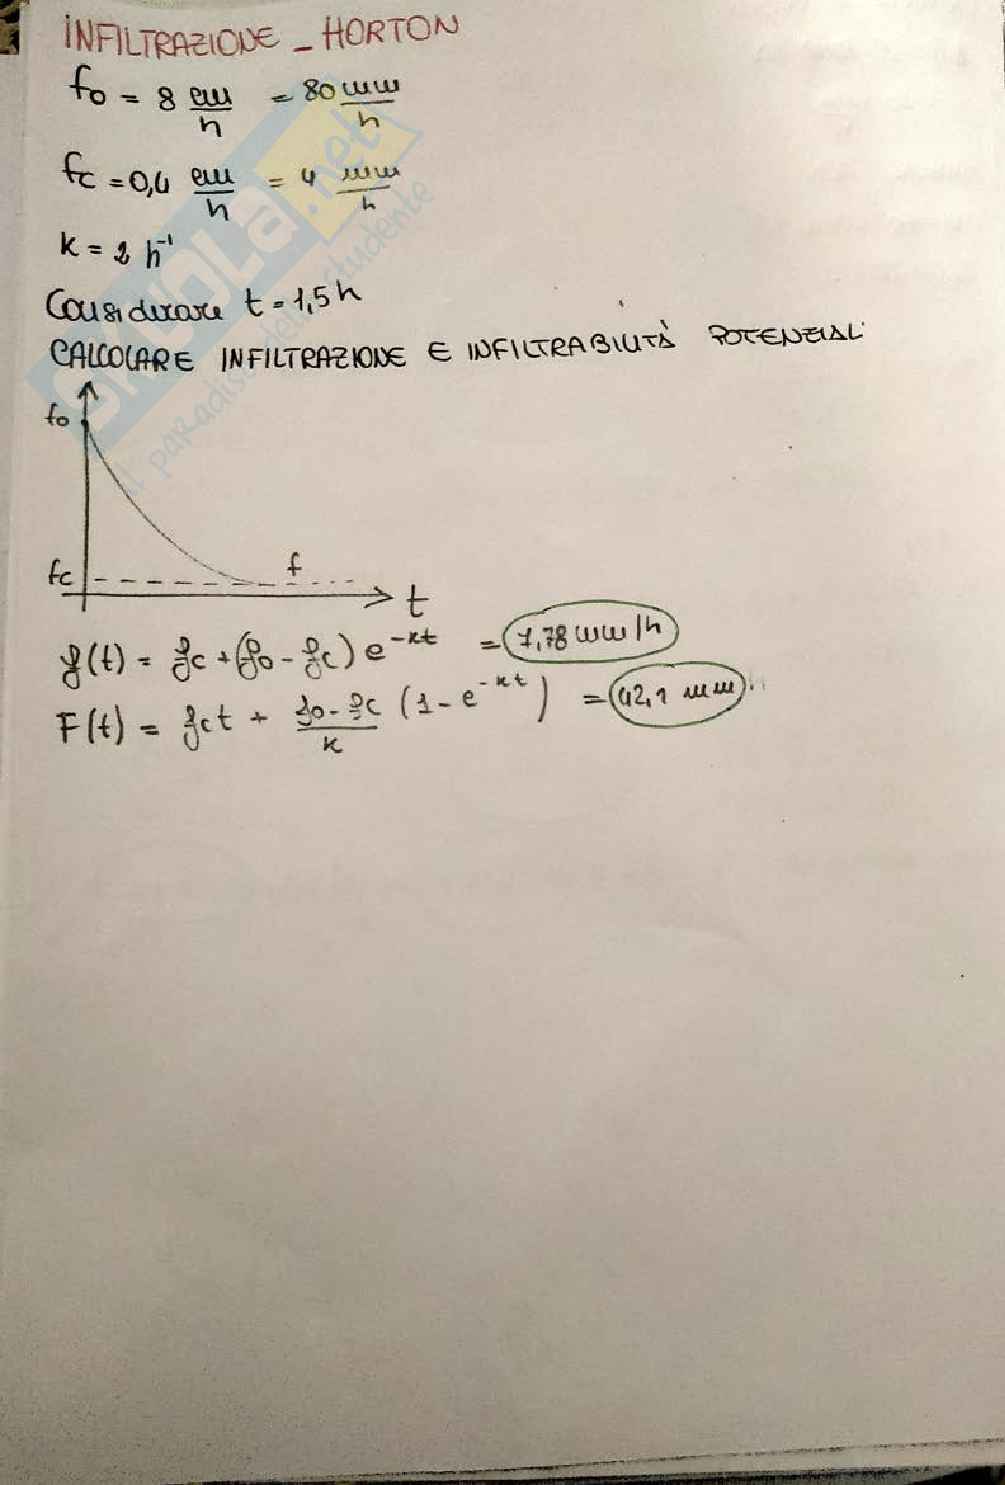 INFILTRAZIONE _ HORTON
f0 = 8 cm/h = 80 mm/h
fc = 0,4 cm/h = 4 mm/h
k = 2 h⁻¹
Considerare t = 1,5 h
CALCOLARE INFILTRAZIONE E INFILTRABILITÀ POTENZIALI
f0
fc
f
t
f(t) = fc + (f0 - fc) e^-kt = 7,78 mm/h
F(t) = fct + f0 - fc/k (1 - e^-kt) = 42,1 mm
SKUOLA.net
il paradiso dello studente